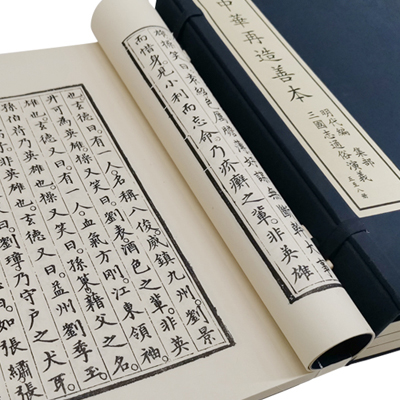 中華再造善本
明代編 集部
三國志通俗演義
而惜身見小利而忘命乃疥癬之輩。非英雄
也。玄德曰。有一人名稱八俊。威鎮九州。劉景
升可爲英雄。操又笑曰。劉表酒色之輩。非英
雄也。玄德又曰。有一人血氣方剛。江東領袖。
孫伯符乃英雄也。操又笑曰。孫策藉父之名。
英雄也。玄德又曰。益州劉季玉
曰。劉璋乃守戶之犬耳。
如張繡張